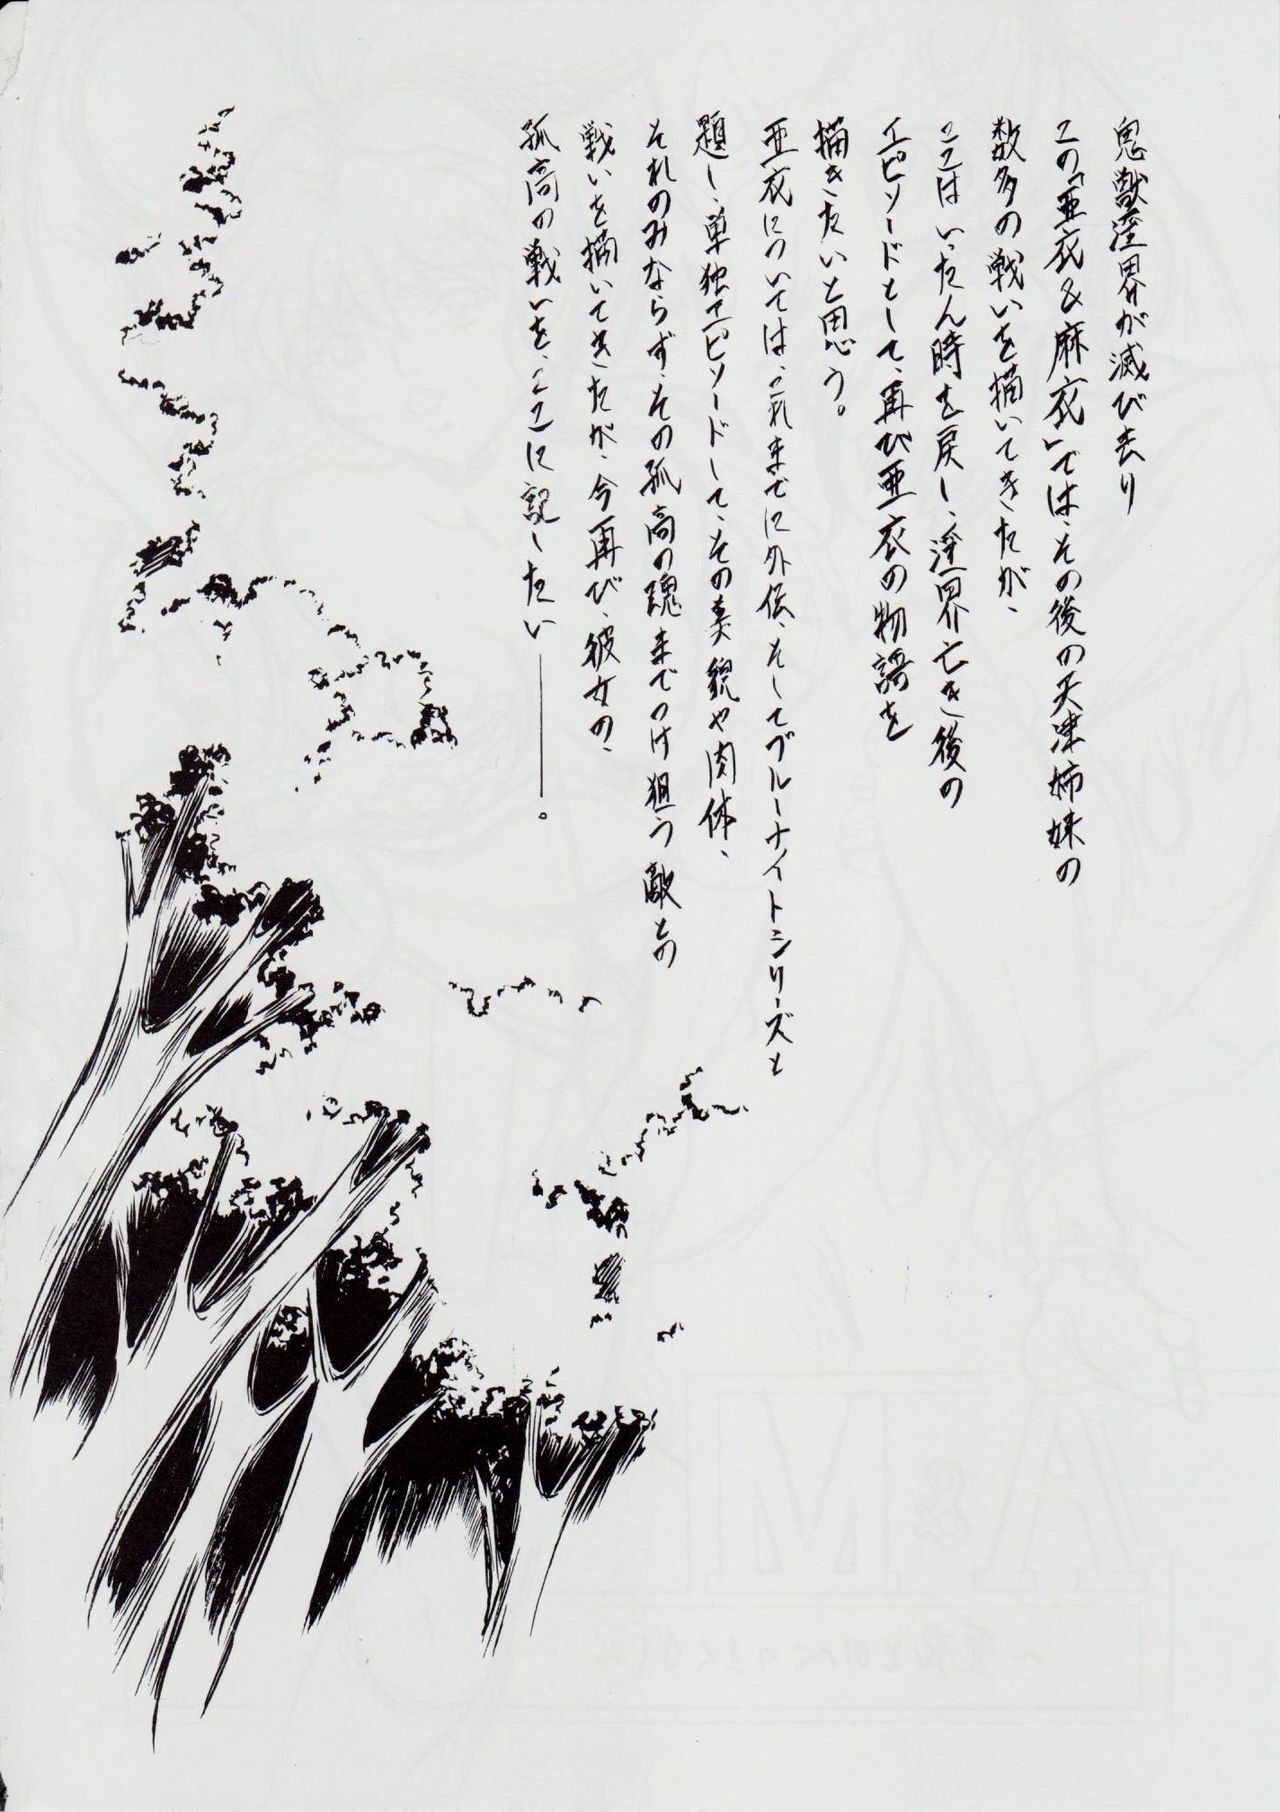 鬼獣淫界が滅び去り
この「亜衣＆麻衣」では、その後の天津姉妹の
数多の戦いを描いてきたが、
ここはいったん時を戻し、淫界亡き後の
エピソードとして、再び亜衣の物語を
描きたいと思う。
亜衣については、これまでに外伝、そしてブルーナイトシリーズと
題し、単独エピソードして、その美貌や肉体、
それのみならず、その孤高の魂までつけ狙う敵との
戦いを描いてきたが、今再び、彼女の、
孤高の戦いを、ここに記したい――――。
A&M